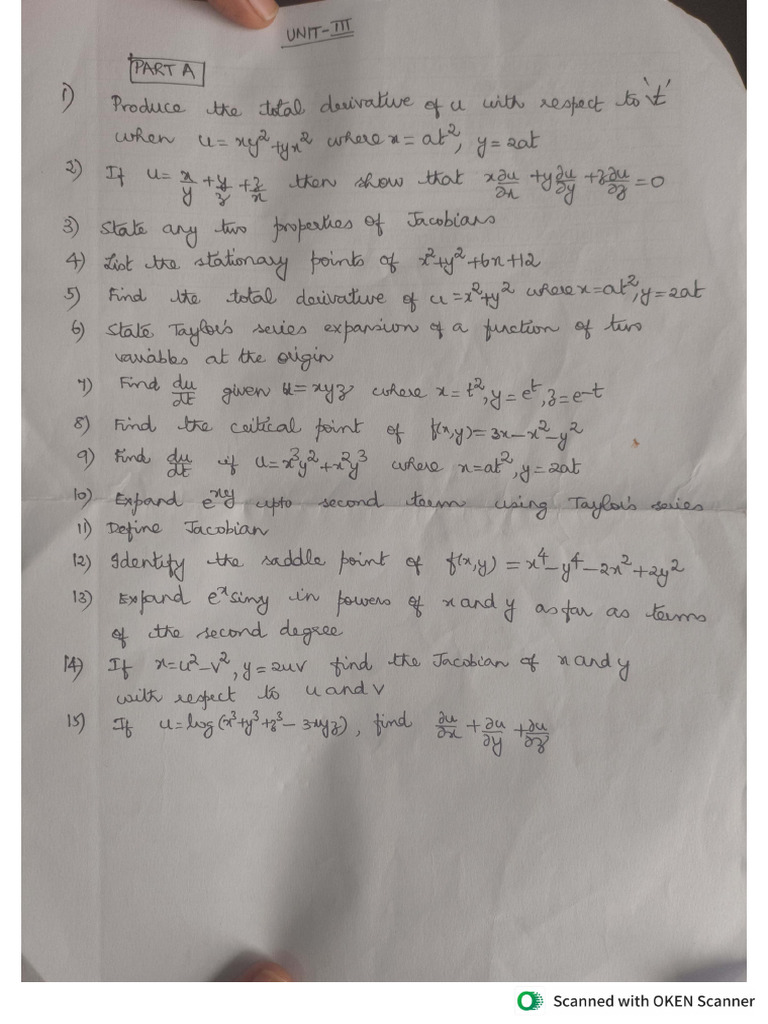 UNIT-III
PART A
1) Produce the total derivative of u with respect to 't'
when u = xy² + yx² where x = at², y = 2at
2) If u = x/y + y/z + z/x then show that x ∂u/∂x + y ∂u/∂y + z ∂u/∂z = 0
3) State any two properties of Jacobians
4) List the stationary points of x²+y²+6x+12
5) Find the total derivative of u = x²+y² where x = at², y = 2at
6) State Taylor's series expansion of a function of two
variables at the origin
7) Find du/dt given u = xyz where x = t², y = e^t, z = e^-t
8) Find the critical point of f(x,y) = 3x - x² - y²
9) Find du/dt if u = x³y² + x²y³ where x = at², y = 2at
10) Expand e^xy upto second term using Taylor's series
11) Define Jacobian
12) Identify the saddle point of f(x,y) = x⁴ - y⁴ - 2x² + 2y²
13) Expand e^x siny in powers of x and y as far as terms
of the second degree
14) If x = u² - v², y = 2uv find the Jacobian of x and y
with respect to u and v
15) If u = log(x³+y³+z³ - 3xyz), find ∂u/∂x + ∂u/∂y + ∂u/∂z
Scanned with OKEN Scanner